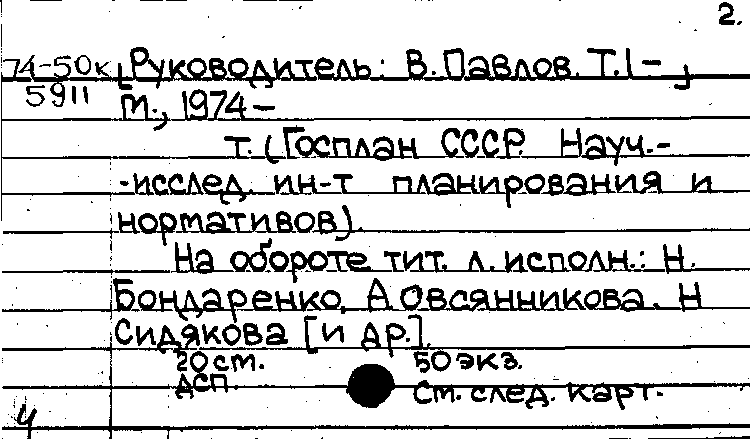 2.
74-50к [Руководитель: В. Павлов. Т. 1 – ]
5911 М., 1974 –
т. (Госплан СССР. Науч.-
-исслед. ин-т планирования и
нормативов).
На обороте тит. л. исполн.: Н.
Бондаренко, А. Овсянникова, Н
Сидякова [и др.].
20 см. 50 экз.
ДСП. См. след. карт.
Ч